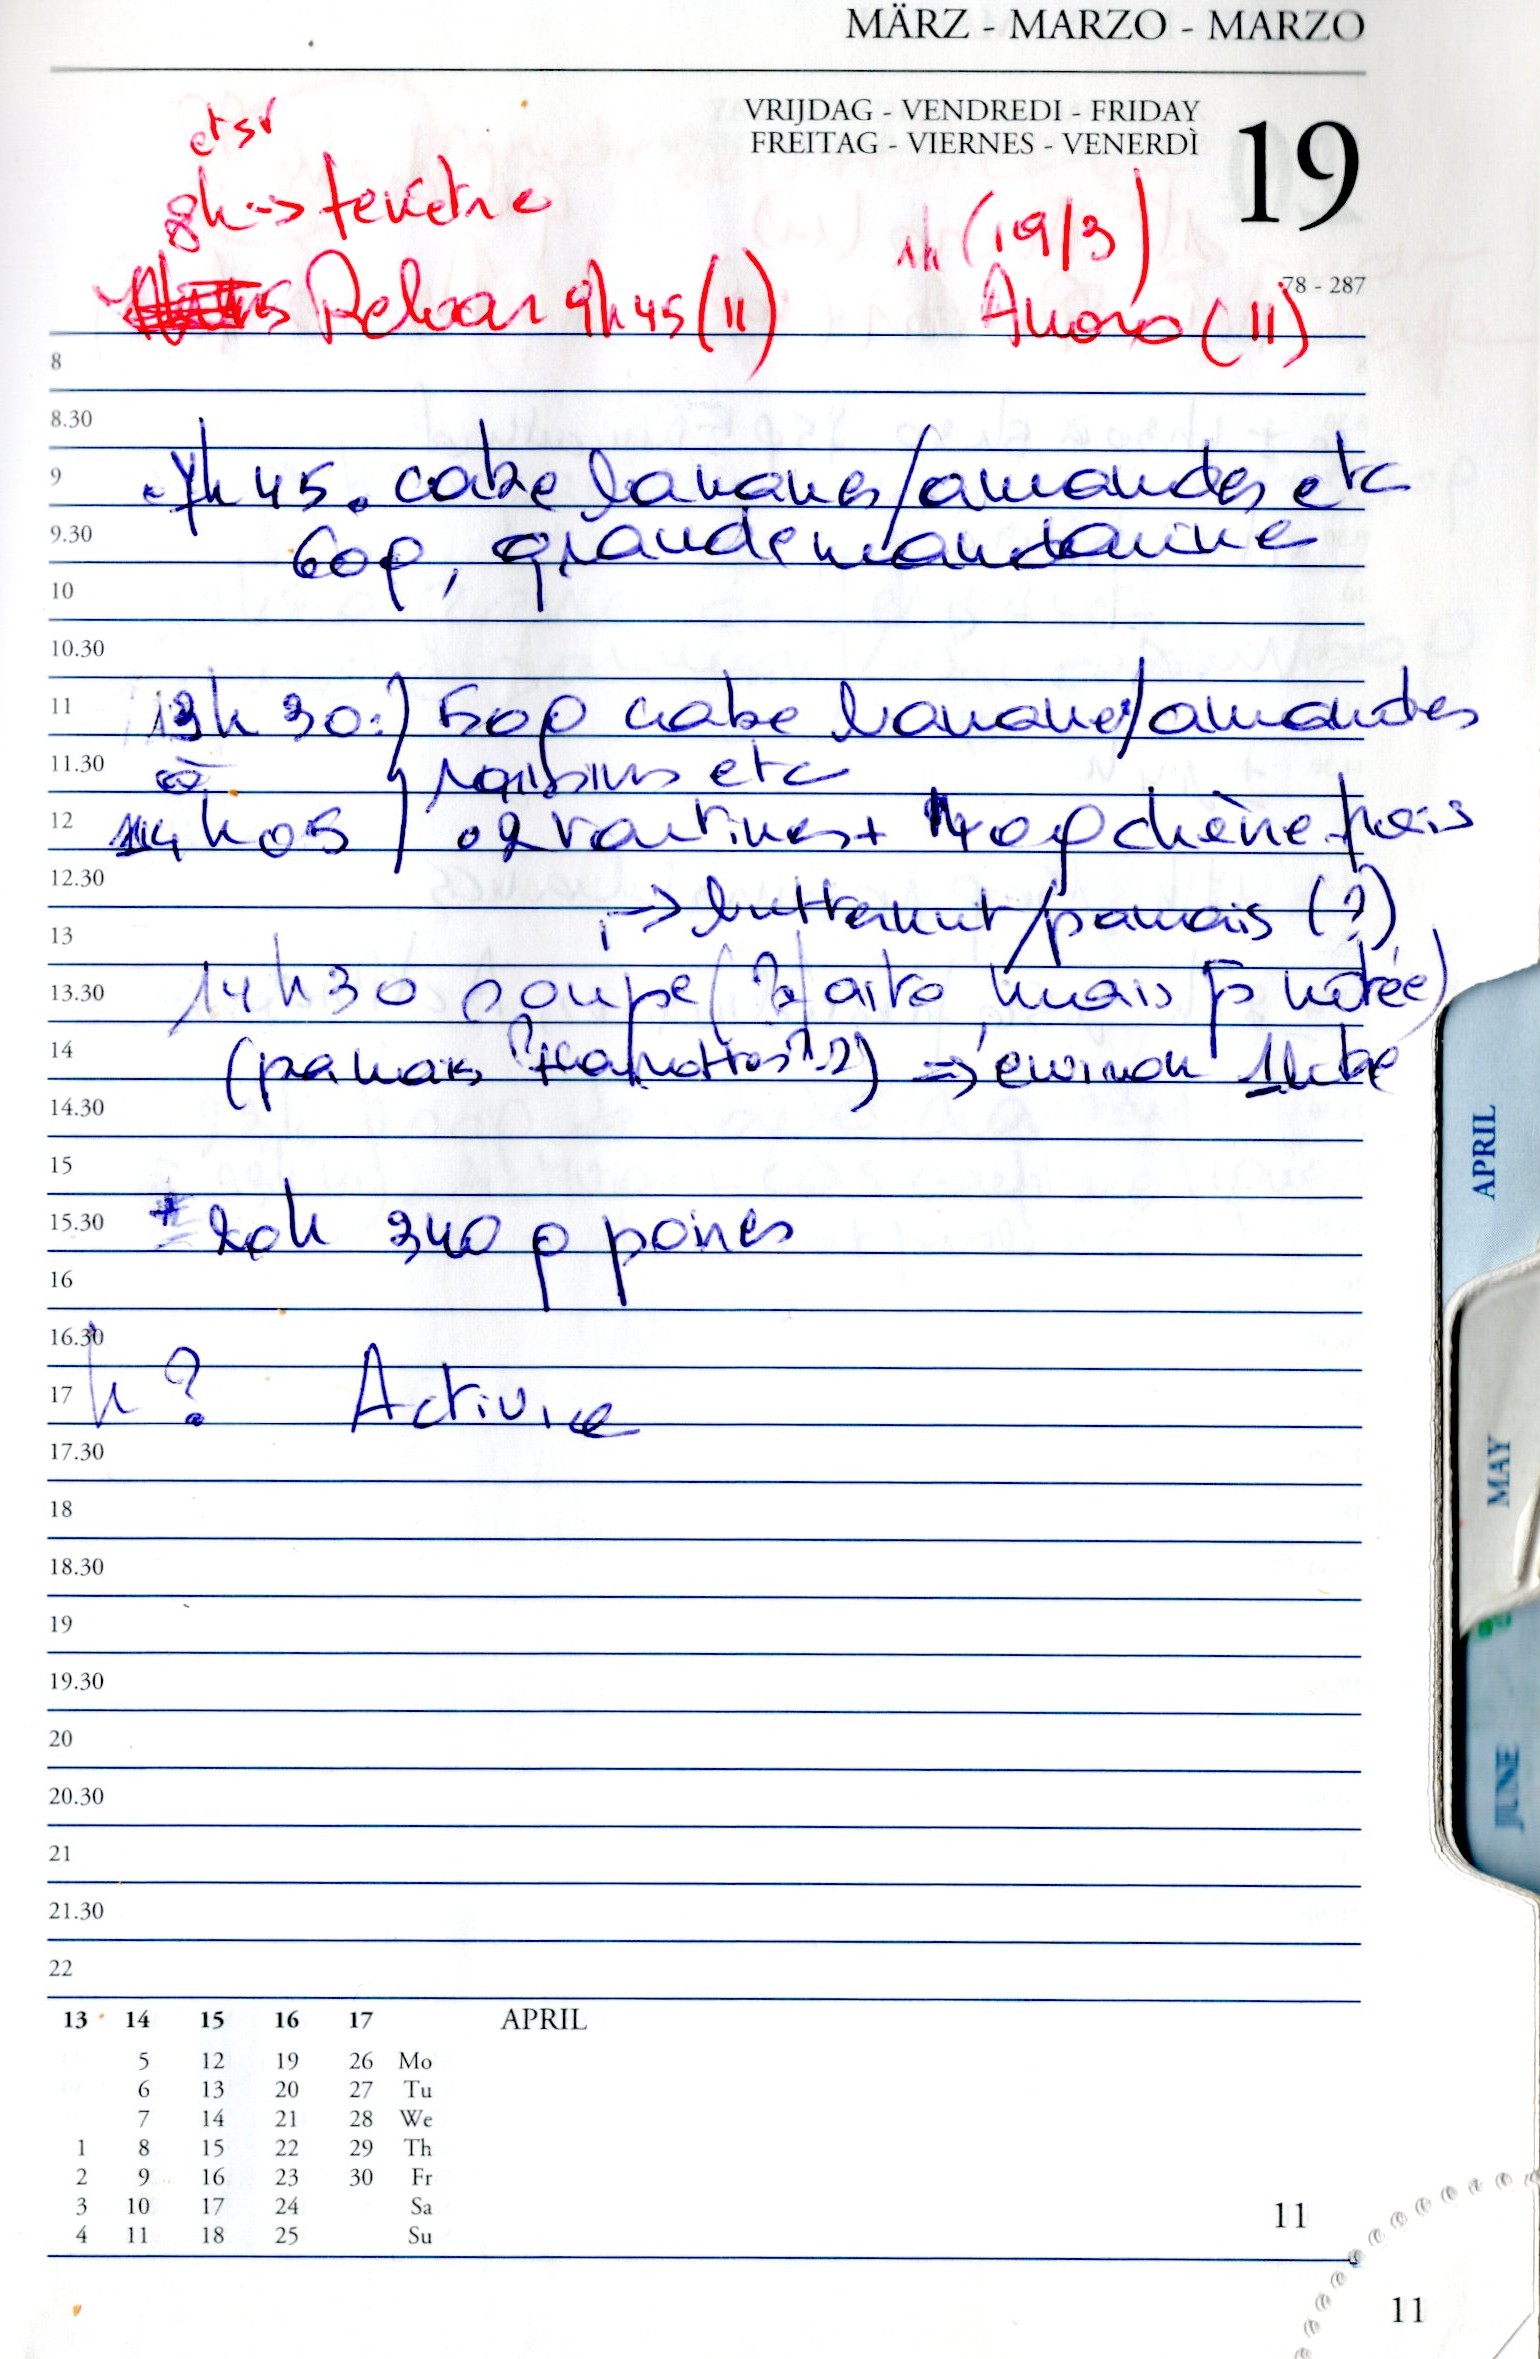 MÄRZ - MARZO - MARZO
VRIJDAG - VENDREDI - FRIDAY
FREITAG - VIERNES - VENERDÌ
19
78 - 287
8h -> fenêtre
9h45 (11)
1h (19/3)
(11)
8
8.30
7h45. cake bananes/amandes etc
9
9.30
60g, grande mandarine
10
10.30
11
13h30: 50g cake bananes/amandes
11.30
à raisins etc
12
14h05 2 tartines + 40g chèvre frais
12.30
-> butternut/panais (?)
13
13.30
14h30 soupe
14
(panais ⇒ environ 1
14.30
15
15.30
± 20h 340 g poires
16
16.30
17
h ? Activia
17.30
18
18.30
19
19.30
20
20.30
21
21.30
22
13 14 15 16 17 APRIL
5 12 19 26 Mo
6 13 20 27 Tu
7 14 21 28 We
1 8 15 22 29 Th
2 9 16 23 30 Fr
3 10 17 24 Sa
4 11 18 25 Su
11
11
APRIL
MAY
JUNE